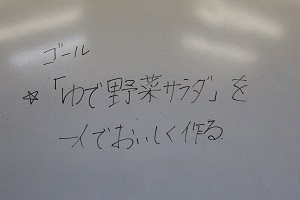 ゴール
☆「ゆで野菜サラダ」を
一人でおいしく作る